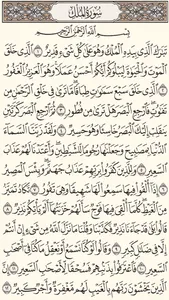 سُورَةُ المُلْكِ
بِسْمِ ٱللَّهِ ٱلرَّحْمَٰنِ ٱلرَّحِيمِ
تَبَٰرَكَ ٱلَّذِى بِيَدِهِ ٱلْمُلْكُ وَهُوَ عَلَىٰ كُلِّ شَىْءٍ قَدِيرٌ ١ ٱلَّذِى خَلَقَ
ٱلْمَوْتَ وَٱلْحَيَوٰةَ لِيَبْلُوَكُمْ أَيُّكُمْ أَحْسَنُ عَمَلًا وَهُوَ ٱلْعَزِيزُ ٱلْغَفُورُ
٢ ٱلَّذِى خَلَقَ سَبْعَ سَمَٰوَٰتٍ طِبَاقًا مَّا تَرَىٰ فِى خَلْقِ ٱلرَّحْمَٰنِ مِن
تَفَٰوُتٍ فَٱرْجِعِ ٱلْبَصَرَ هَلْ تَرَىٰ مِن فُطُورٍ ٣ ثُمَّ ٱرْجِعِ ٱلْبَصَرَ كَرَّتَيْنِ
يَنقَلِبْ إِلَيْكَ ٱلْبَصَرُ خَاسِئًا وَهُوَ حَسِيرٌ ٤ وَلَقَدْ زَيَّنَّا ٱلسَّمَآءَ
ٱلدُّنْيَا بِمَصَٰبِيحَ وَجَعَلْنَٰهَا رُجُومًا لِّلشَّيَٰطِينِ وَأَعْتَدْنَا لَهُمْ عَذَابَ
ٱلسَّعِيرِ ٥ وَلِلَّذِينَ كَفَرُوا۟ بِرَبِّهِمْ عَذَابُ جَهَنَّمَ وَبِئْسَ ٱلْمَصِيرُ
٦ إِذَآ أُلْقُوا۟ فِيهَا سَمِعُوا۟ لَهَا شَهِيقًا وَهِىَ تَفُورُ ٧ تَكَادُ تَمَيَّزُ
مِنَ ٱلْغَيْظِ كُلَّمَآ أُلْقِىَ فِيهَا فَوْجٌ سَأَلَهُمْ خَزَنَتُهَآ أَلَمْ يَأْتِكُمْ نَذِيرٌ ٨
قَالُوا۟ بَلَىٰ قَدْ جَآءَنَا نَذِيرٌ فَكَذَّبْنَا وَقُلْنَا مَا نَزَّلَ ٱللَّهُ مِن شَىْءٍ إِنْ أَنتُمْ
إِلَّا فِى ضَلَٰلٍ كَبِيرٍ ٩ وَقَالُوا۟ لَوْ كُنَّا نَسْمَعُ أَوْ نَعْقِلُ مَا كُنَّا فِىٓ أَصْحَٰبِ
ٱلسَّعِيرِ ١٠ فَٱعْتَرَفُوا۟ بِذَنۢبِهِمْ فَسُحْقًا لِّأَصْحَٰبِ ٱلسَّعِيرِ ١١ إِنَّ
ٱلَّذِينَ يَخْشَوْنَ رَبَّهُم بِٱلْغَيْبِ لَهُم مَّغْفِرَةٌ وَأَجْرٌ كَبِيرٌ ١٢